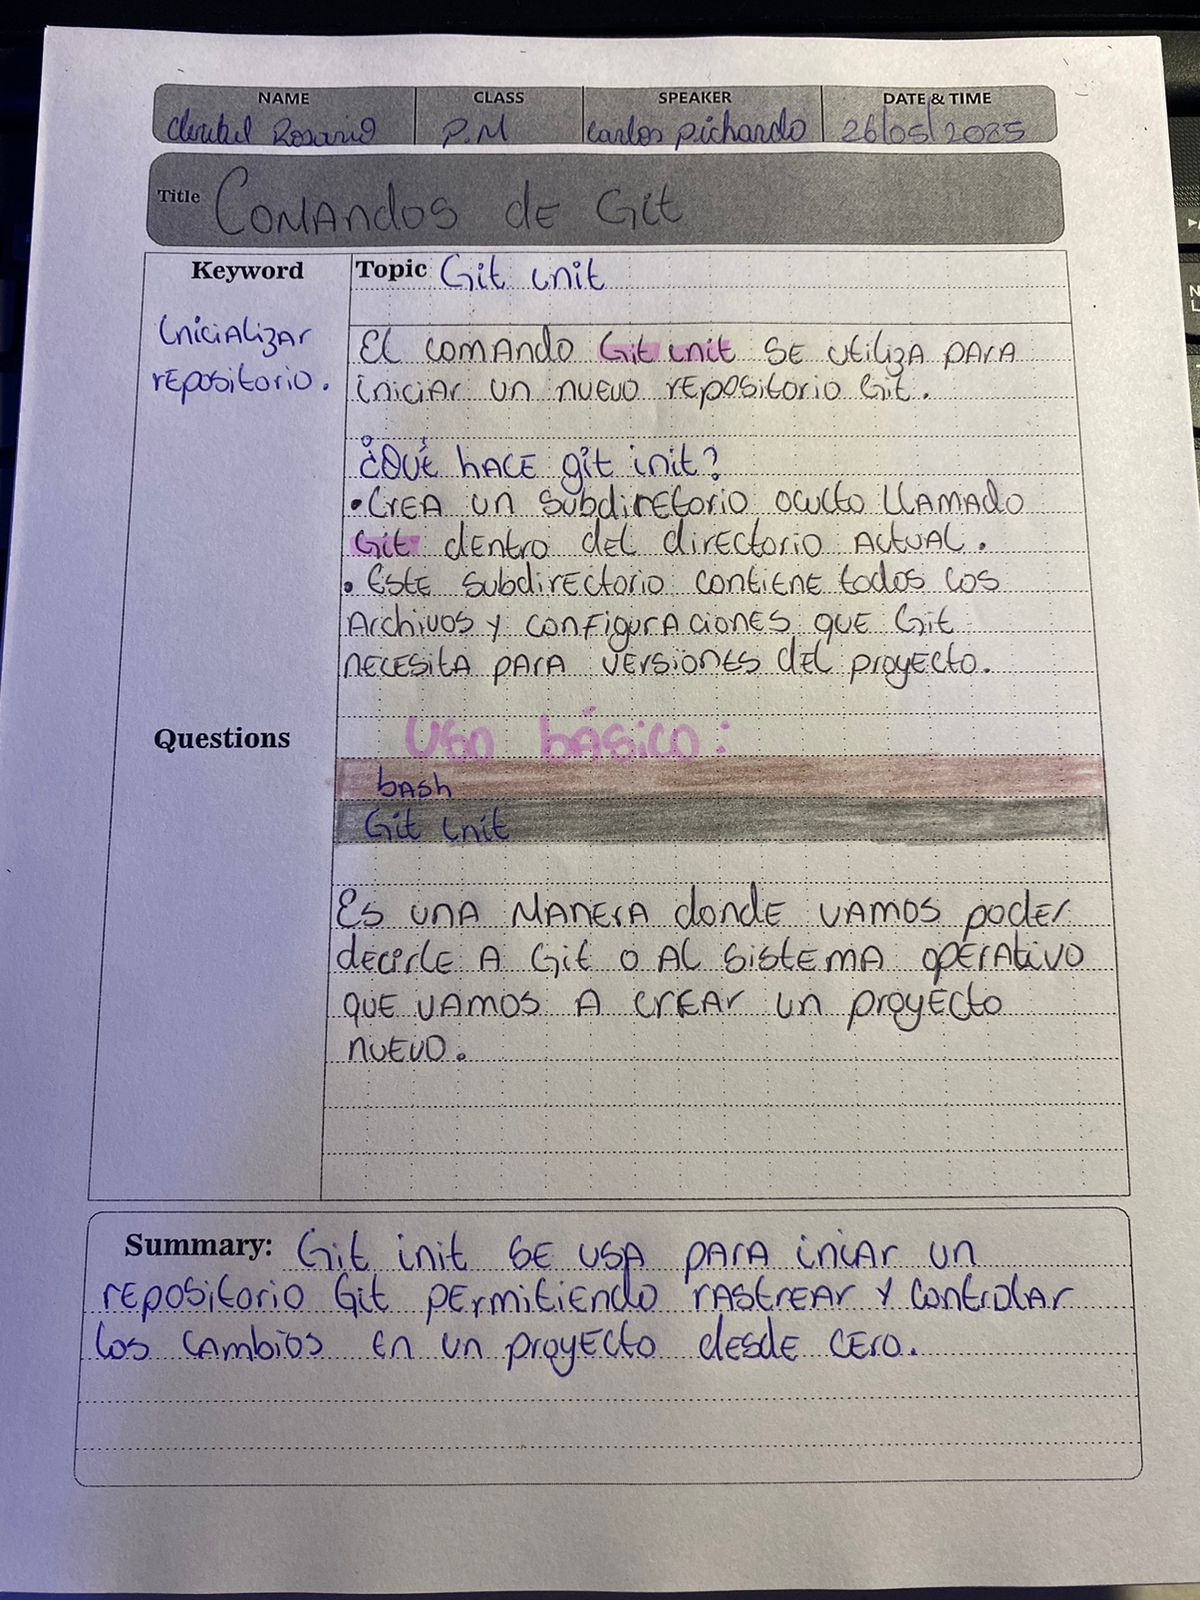 NAME CLASS SPEAKER DATE & TIME
Rosario P.M Carlos Pichardo 26/05/2025
Title Comandos de Git
Keyword Topic Git init
Inicializar
repositorio.
El comando Git init se utiliza para
iniciar un nuevo repositorio Git.
¿Qué hace git init?
• Crea un subdiretorio oculto llamado
Git dentro del directorio actual.
• Este subdirectorio contiene todos los
Archivos y configuraciones que Git
necesita para versiones del proyecto.
Questions
Uso básico:
bash
Git init
Es una manera donde vamos poder
decirle a Git o al sistema operativo
que vamos a crear un proyecto
nuevo.
Summary: Git init se usa para iniciar un
repositorio Git permitiendo rastrear y controlar
los cambios en un proyecto desde cero.